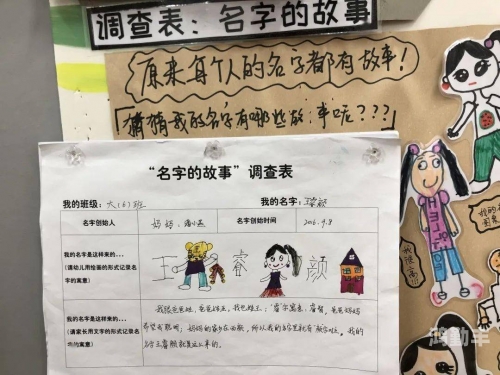 调查表：名字的故事
原来每个人的名字都有故事！
「猜猜我的名字有哪些故事呢？？？
“名字的故事”调查表
我的班级：大（6）班 我的名字：王睿颜
名字创始人 妈妈 名字创始时间
我的名字是这样来的…
（请幼儿用绘画的形式记录名字的寓意）
王 睿 颜
我的名字是这样来的…
（请家长用文字的形式记录名字的寓意）
我跟爸爸姓，爸爸姓王，我也姓王；"睿"字寓意，睿智，爸爸妈妈
希望我聪明；妈妈的家乡在
名字王睿颜就是这么来的。
HELLO
我很高！